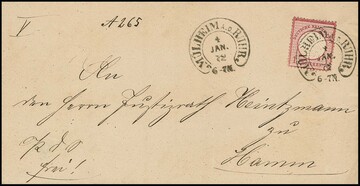 V
A 265
MÜLHEIM a.d. RUHR.
4
JAN.
72
6-7N.
MÜLHEIM a.d. RUHR.
4
JAN.
72
6-7N.
An
den Herrn Justizrath Heintzmann
zu
Hamm
frei!